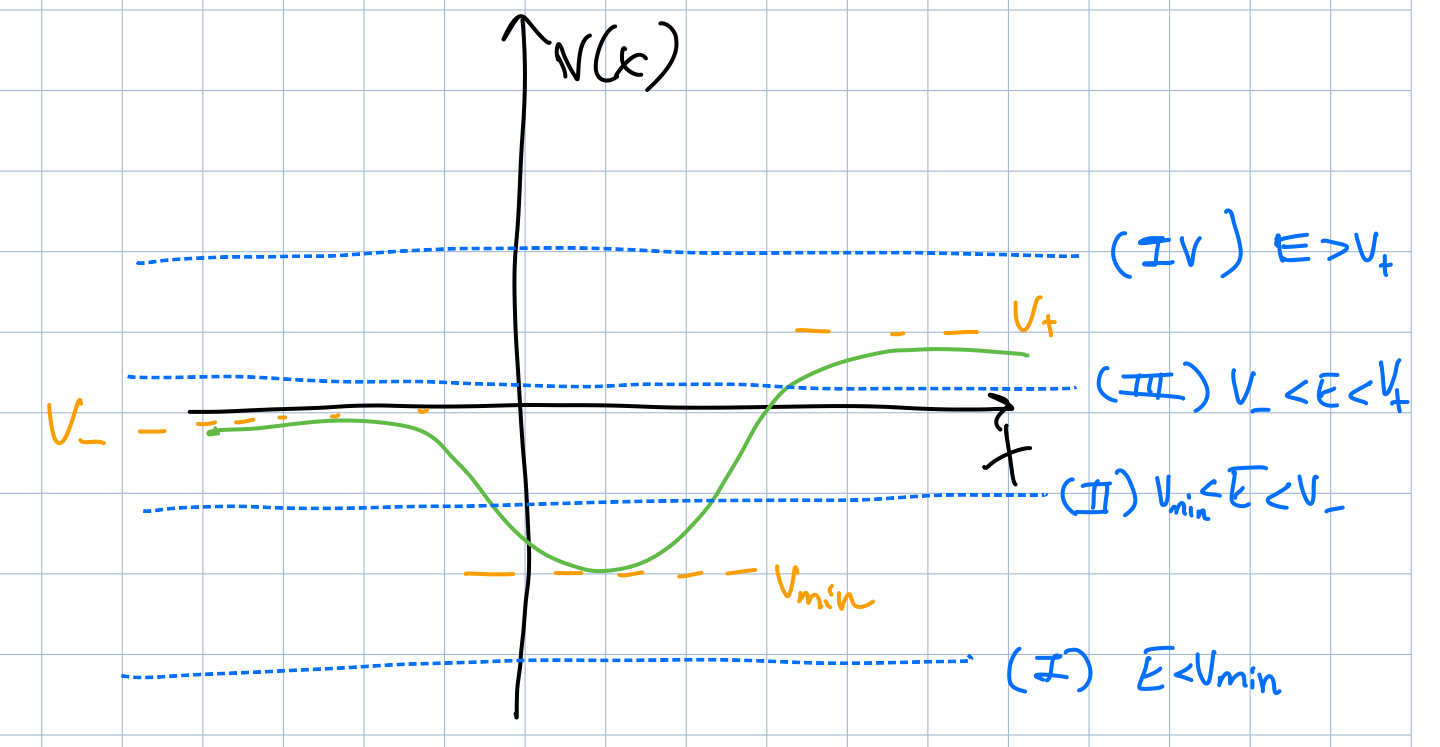 V(x)
(IV) E > V₊
V₊
(III) V₋ < E < V₊
V₋
x
(II) Vmin < E < V₋
Vmin
(I) E < Vmin